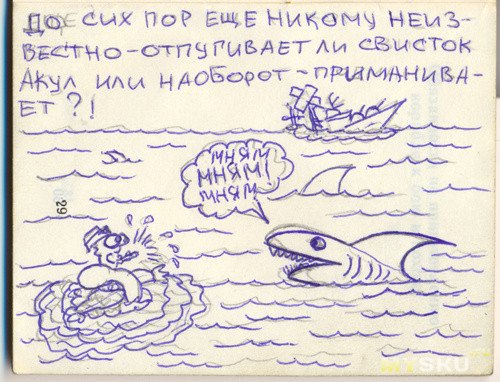 ДО СИХ ПОР ЕЩЕ НИКОМУ НЕИЗ-
ВЕСТНО - ОТПУГИВАЕТ ЛИ СВИСТОК
АКУЛ ИЛИ НАОБОРОТ - ПРИМАНИВА-
ЕТ ?!
МНЯМ
МНЯМ!
МНЯМ
29
SKU